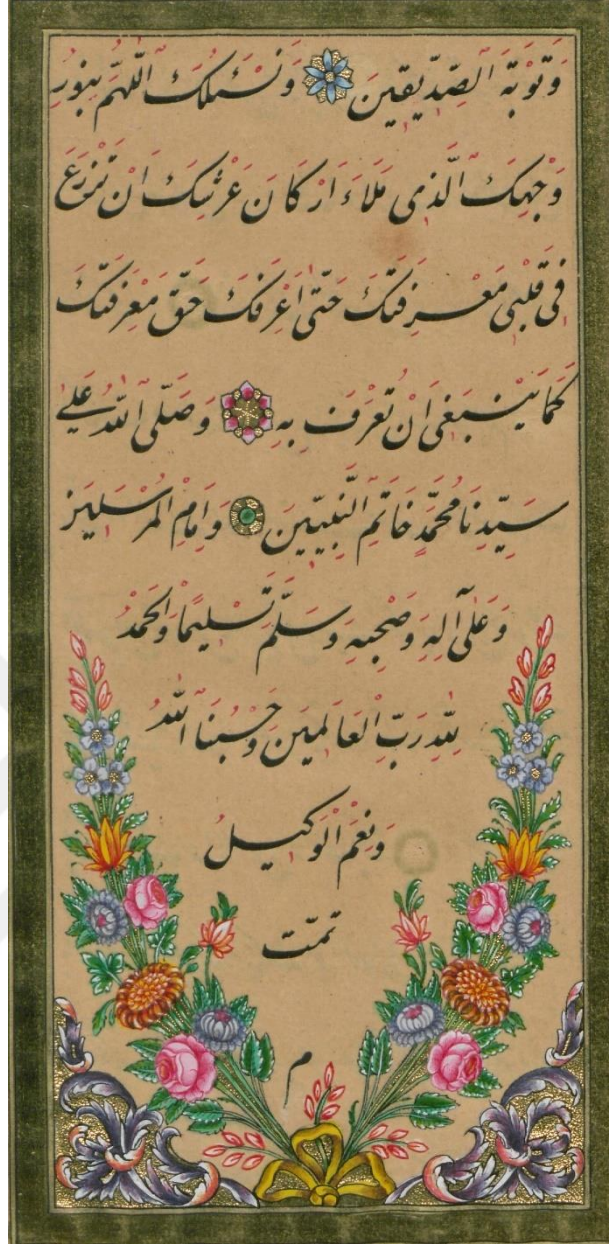 وَتَوْبَةَ الصِّدِّيقِينَ وَنَسْئَلُكَ اللّٰهُمَّ بِنُورِ
وَجْهِكَ الَّذِى مَلَاءَ اَرْكَانَ عَرْشِكَ اَنْ تَزْرَعَ
فِى قَلْبِى مَعْرِفَتَكَ حَتّٰى اَعْرِفَكَ حَقَّ مَعْرِفَتِكَ
كَمَا يَنْبَغِى اَنْ تُعْرَفَ بِهِ وَصَلَّى اللّٰهُ عَلٰى
سَيِّدِنَا مُحَمَّدٍ خَاتَمِ النَّبِيِّينَ وَاِمَامِ الْمُرْسَلِينَ
وَعَلٰى آلِهِ وَصَحْبِهِ وَسَلَّمَ تَسْلِيمًا وَالْحَمْدُ
لِلّٰهِ رَبِّ الْعَالَمِينَ وَحَسْبُنَا اللّٰهُ
وَنِعْمَ الْوَكِيلُ
تمت
م